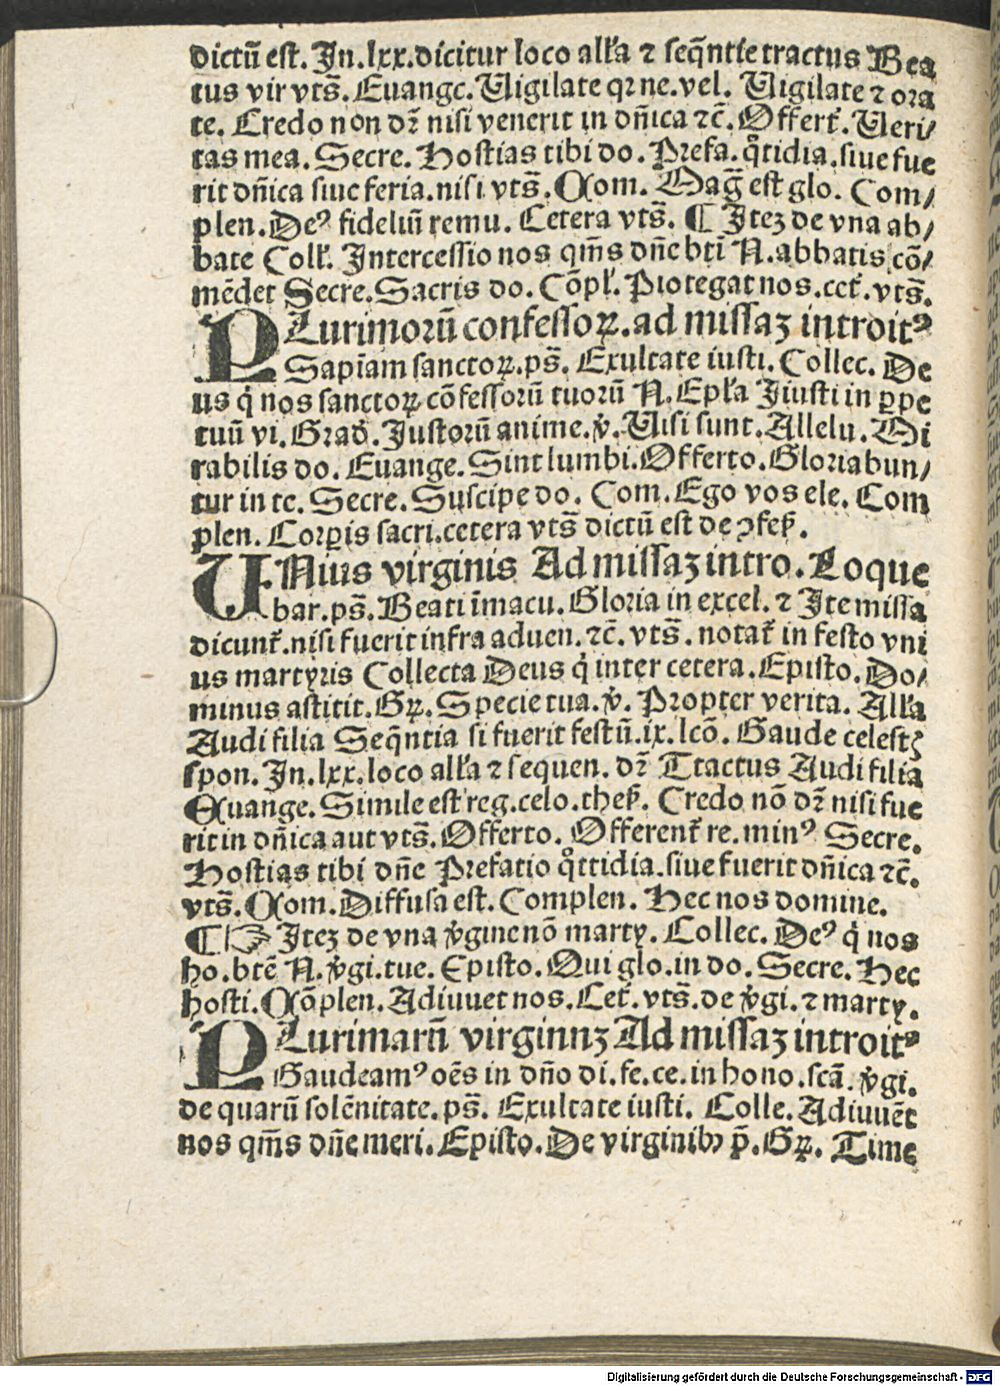 dictū est. In .lxx. dicitur loco all'a ⁊ seq̄ntie tractus Bea
tus vir vts̄. Euange. Uigilate qꝛ ne. vel. Uigilate ⁊ ora
te. Credo non dꝛ̄ nisi venerit in dn̄ica ⁊c̄. Offert̄. Ueri/
tas mea. Secre. Hostias tibi do. Prefa. q̊tidia. siue fue
rit dn̄ica siue feria. nisi vts̄. Com. Mag̅ est glo. Com/
plen. Deꝰ fideliū remu. Cetera vts̄. ¶ Iteꝫ de vna ab/
bate Coll'. Intercessio nos qm̄s dn̄e bt̄i N. abbatis cō/
mēdet Secre. Sacris do. Cōpl'. Protegat nos. cet̄. vts̄.
PLurimoꝛū confessoꝝ. ad missaꝫ introitꝰ
Sapiam sanctoꝝ. ps̄. Exultate iusti. Collec. De
us q̇ nos sanctoꝝ cōfessoꝛū tuoꝛū N. Epl'a Iiusti in ꝑpe
tuū vi. Grad'. Iustoꝛū anime. v̇. Uisi sunt. Allelu. Mi
rabilis do. Euange. Sint lumbi. Offerto. Gloriabun/
tur in te. Secre. Suscipe do. Com. Ego vos ele. Com
plen. Corꝑis sacri. cetera vts̄ dictū est de ꝯfes̄.
UNius virginis Ad missaꝫ intro. Loque
bar. ps̄. Beati īmacu. Gloria in excel. ⁊ Ite missa
dicunt̄. nisi fuerit infra aduen. ⁊c̄. vts̄. notat̄ in festo vni
us martyris Collecta Deus q̇ inter cetera. Episto. Do/
minus astitit. Gꝝ. Specie tua. v̇. Propter verita. All'a
Audi filia Seq̄ntia si fuerit festū .ix. lcō. Gaude celestꝭ
spon. In .lxx. loco all'a ⁊ sequen. dꝛ̄ Ttactus Audi filia
Euange. Simile est reg. celo. thes̄. Credo nō dꝛ̄ nisi fue
rit in dn̄ica aut vts̄. Offerto. Offerent̄ re. minꝰ Secre.
Hostias tibi dn̄e Prefatio q̊ttidia. siue fuerit dn̄ica ⁊c̄.
vts̄. Com. Diffusa est. Complen. Hec nos domine.
¶ ☞ Iteꝫ de vna v̇gine nō marty. Collec. Deꝰ q̇ nos
ho. btē N. v̇gi. tue. Episto. Qui glo. in do. Secre. Hec
hosti. Cōplen. Adiuuet nos. Cet̄. vts̄. de v̇gi. ⁊ marty.
PLurimarū virginnꝫ Ad missaꝫ introitꝰ
Gaudeamꝰ oēs in dn̄o di. fe. ce. in hono. scā. v̇gi.
de quarū solēnitate. ps̄. Exultate iusti. Colle. Adiuuēt
nos qm̄s dn̄e meri. Episto. De virginibꝰ p̄. Gꝝ. Time
Digitalisierung gefördert durch die Deutsche Forschungsgemeinschaft - DFG